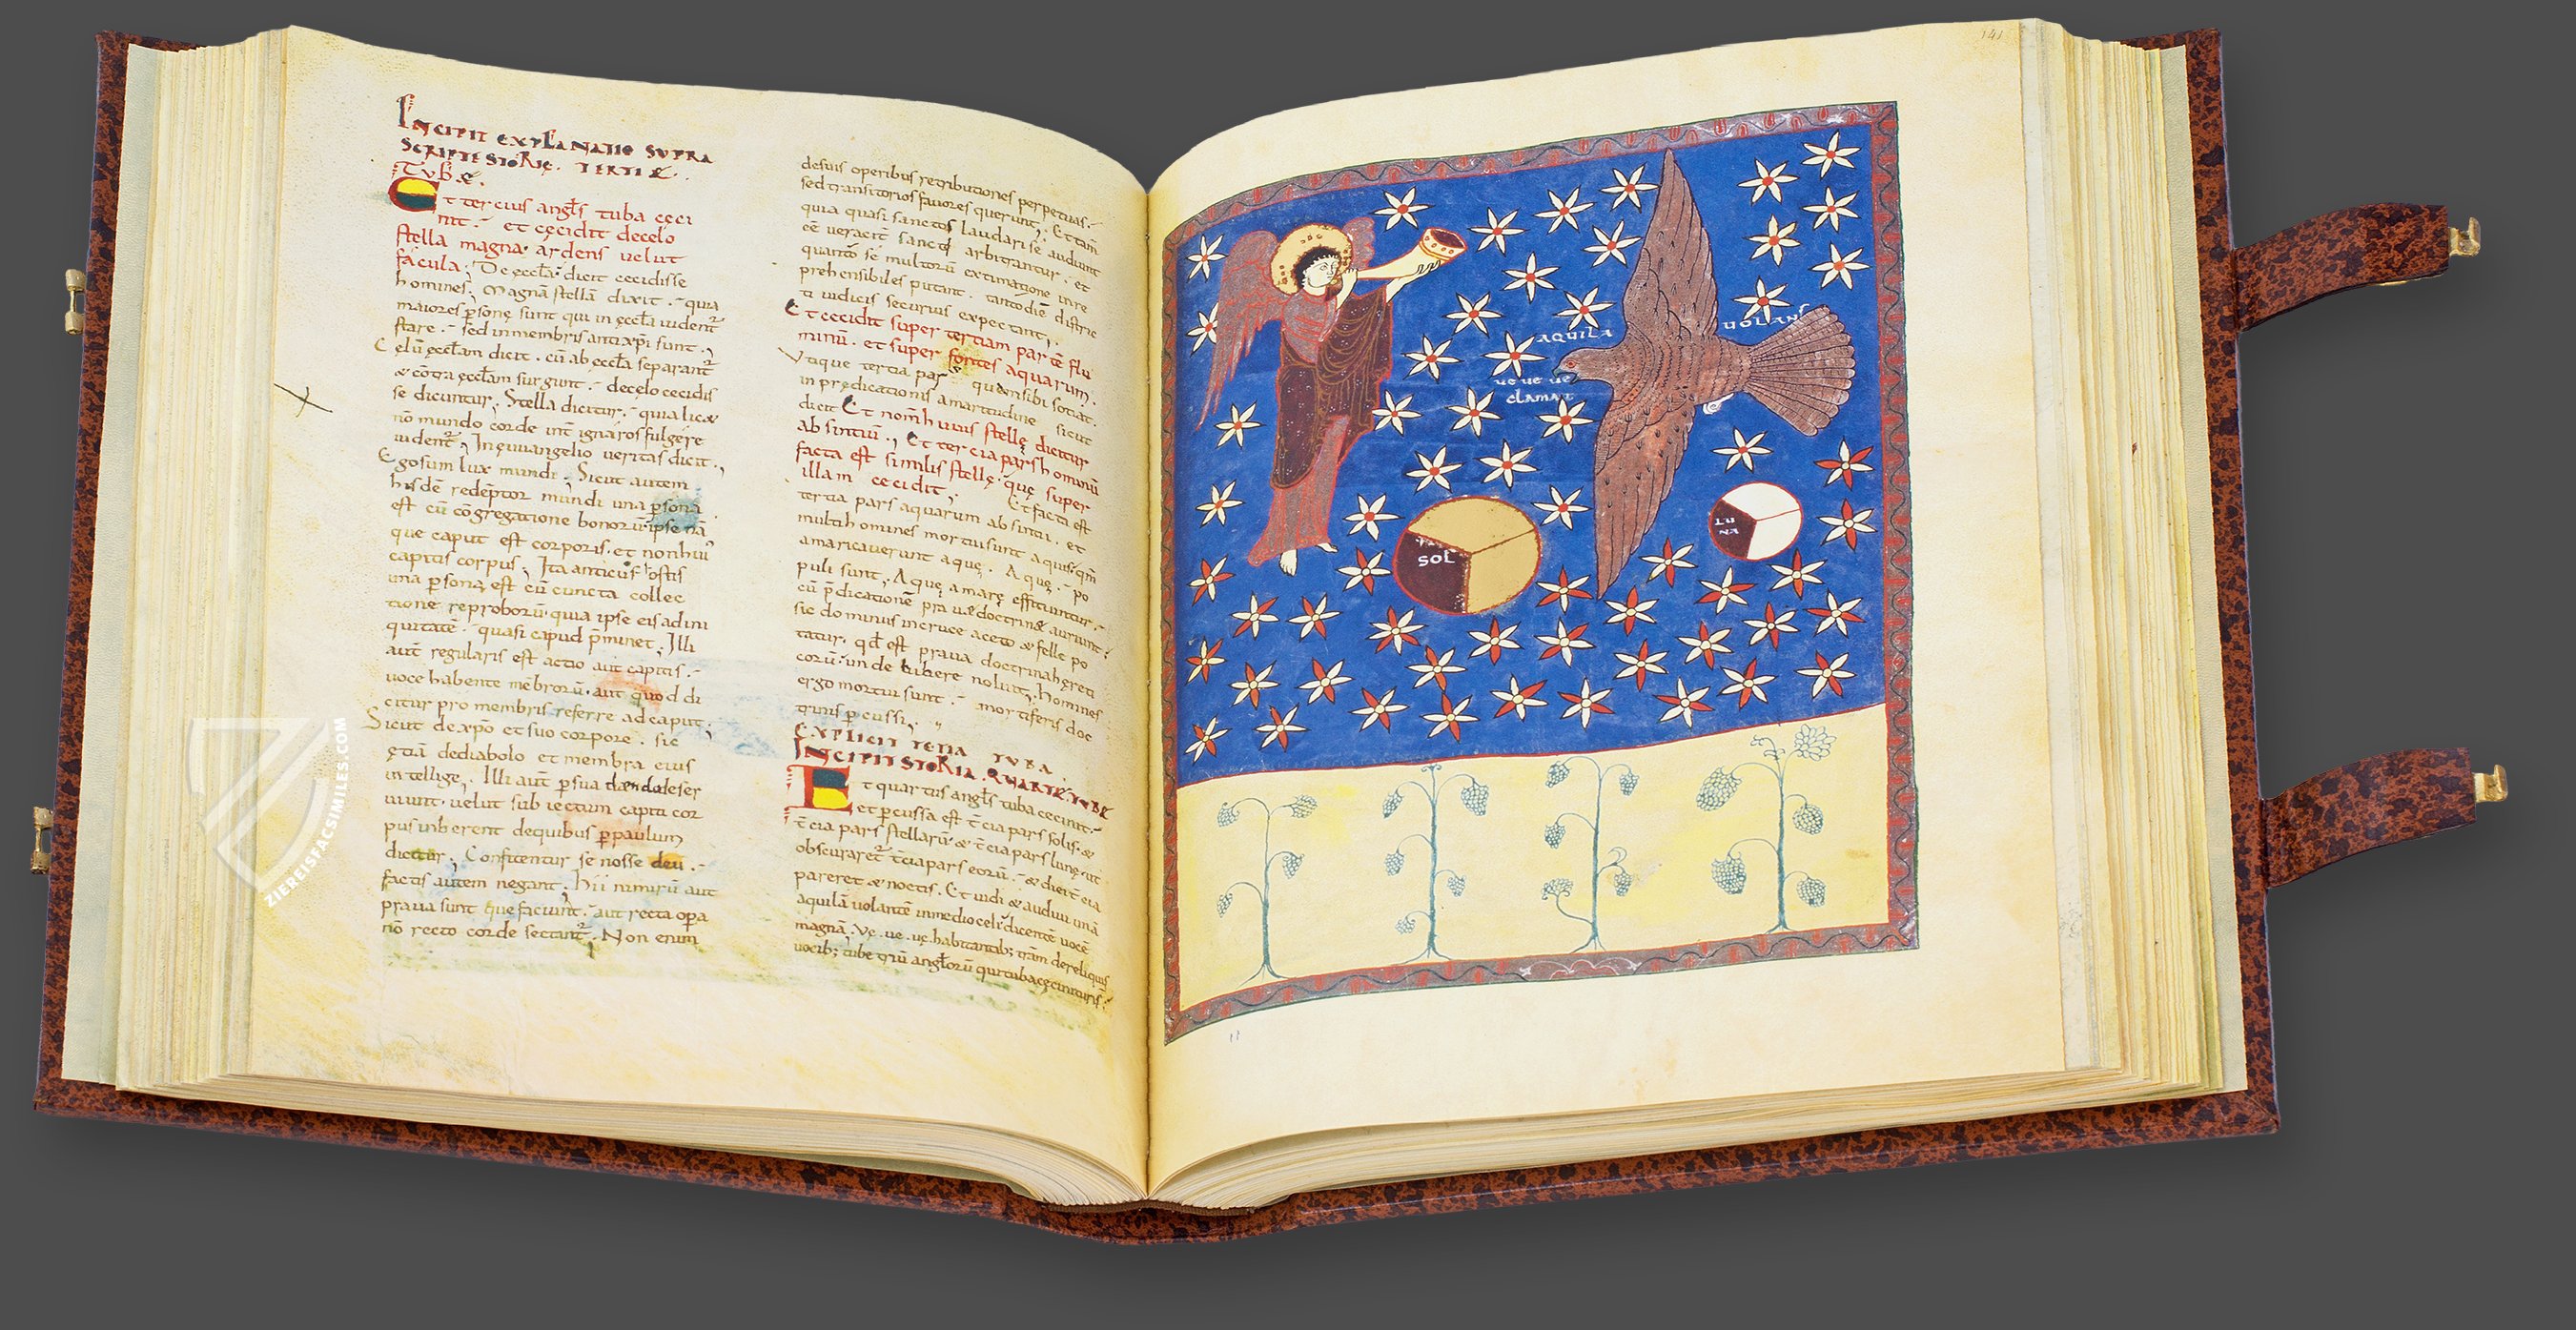 Incipit explanatio supra
scripte storie. tertiæ.
Tubæ.
Et tercius angls tuba ceci
nit. et cecidit decelo
stella magna ardens velut
facula; De eccla dicit cecidisse
homines; Magnā stellā dixit. quia
maiores psonę sunt qui in eccla vident
stare. sed inmembris antixpi sunt;
Celū ęcclam dicit. cū ab eccla separant
& cōtra ęcclam surgunt. decelo cecidis
se dicuntur; Stella dicitur. quia lic&
nō mundo corde int ignaros fulgere
vident; Inęuuangelio veritas dicit;
Egosum lux mundi; Sicut autem
hisdē redēptor mundi una psona
est cū cōgregatione bonorū ipse nā
que caput est corporis. et nonhui
capitis corpus; Ita anticus ostis
una psona est cū cuncta collec
tione reproborū quia ipse eis adini
quitatē. quasi capud pminet; Illi
aut regularis est actio aut capitis.
voce habente mēbrorū. aut quod di
citur pro membris referre adcaput;
Sicut dexpo et suo corpore. sic
ętiā dediabolo et membra eius
intellige; Illi aut psua dandaleser
viunt. velut sub iectum capiti cor
pus inherent dequibus ppaulum
dicitur; Confitentur se nosse deu.
factis autem negant; hii nimirū aut
prava sunt que faciunt. aut recta opa
nō recto corde sectant; Non enim
desuis operibus retributiones perpetuas.
sed transitorios favores querunt; Et cum
quia quasi sanctos laudari se audiunt
eē veracit sancti arbitrantur. et
quanto se multorū extimatione inre
prehensibiles putant. tanto diē distric
ti iudicii securius expectant;
Et cecidit super tertiam partē flu
minū. et super fontes aquarum.
Utique tertia pars quę sibi sotiat.
in predicationis amaritudine sicut
dicit Et nom huius stellę dicitur
absintiū; Et tercia pars hominū
facta est similis stellę. quę super
illam cecidit; Et facta est
tertia pars aquarum absintii. et
multi homines mortui sunt aquis qm
amaricaverunt aquę. Aquę. po
puli sunt; Aquę amarę efficiuntur.
cū pdicationē pravæ doctrinę auriunt;
sic dominus incruce aceto & felle po
tatur. qd est prava doctrina hereti
corū. unde bibere noluit; homines
ergo mortui sunt. mortiferis doc
trinis pcussi;
Explicit tetia tuba.
Incipit storia quartæ tubę
Et quartus angls tuba cecinit.
et pcussa est t̄cia pars solis. &
t̄cia pars stellarū. & t̄cia pars lunę. ut
obscuraret t̄cia pars eorū. & diei t̄cia
pareret & noctis. Et vidi & audivi unā
aquilā volantē inmedio celi dicentē vocē
magnā; Vę. ve. vę. habitantib; trām dereliquis
vocib; tube triū anglorū qui tuba cecinituri s;
141
AQUILA
VOLANS
ve ve ve
clamat
SOL
LU
NA
ZIEREISFACSIMILES.COM